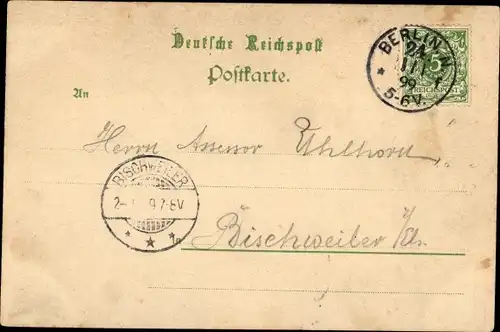 Deutsche Reichspost
Postkarte.
An
BERLIN
5
REICHSPOST
99
5-6V.
Herrn Assessor Uhlhorn
BISCHWEILER
7-8V
In
Bischweiler i/E.